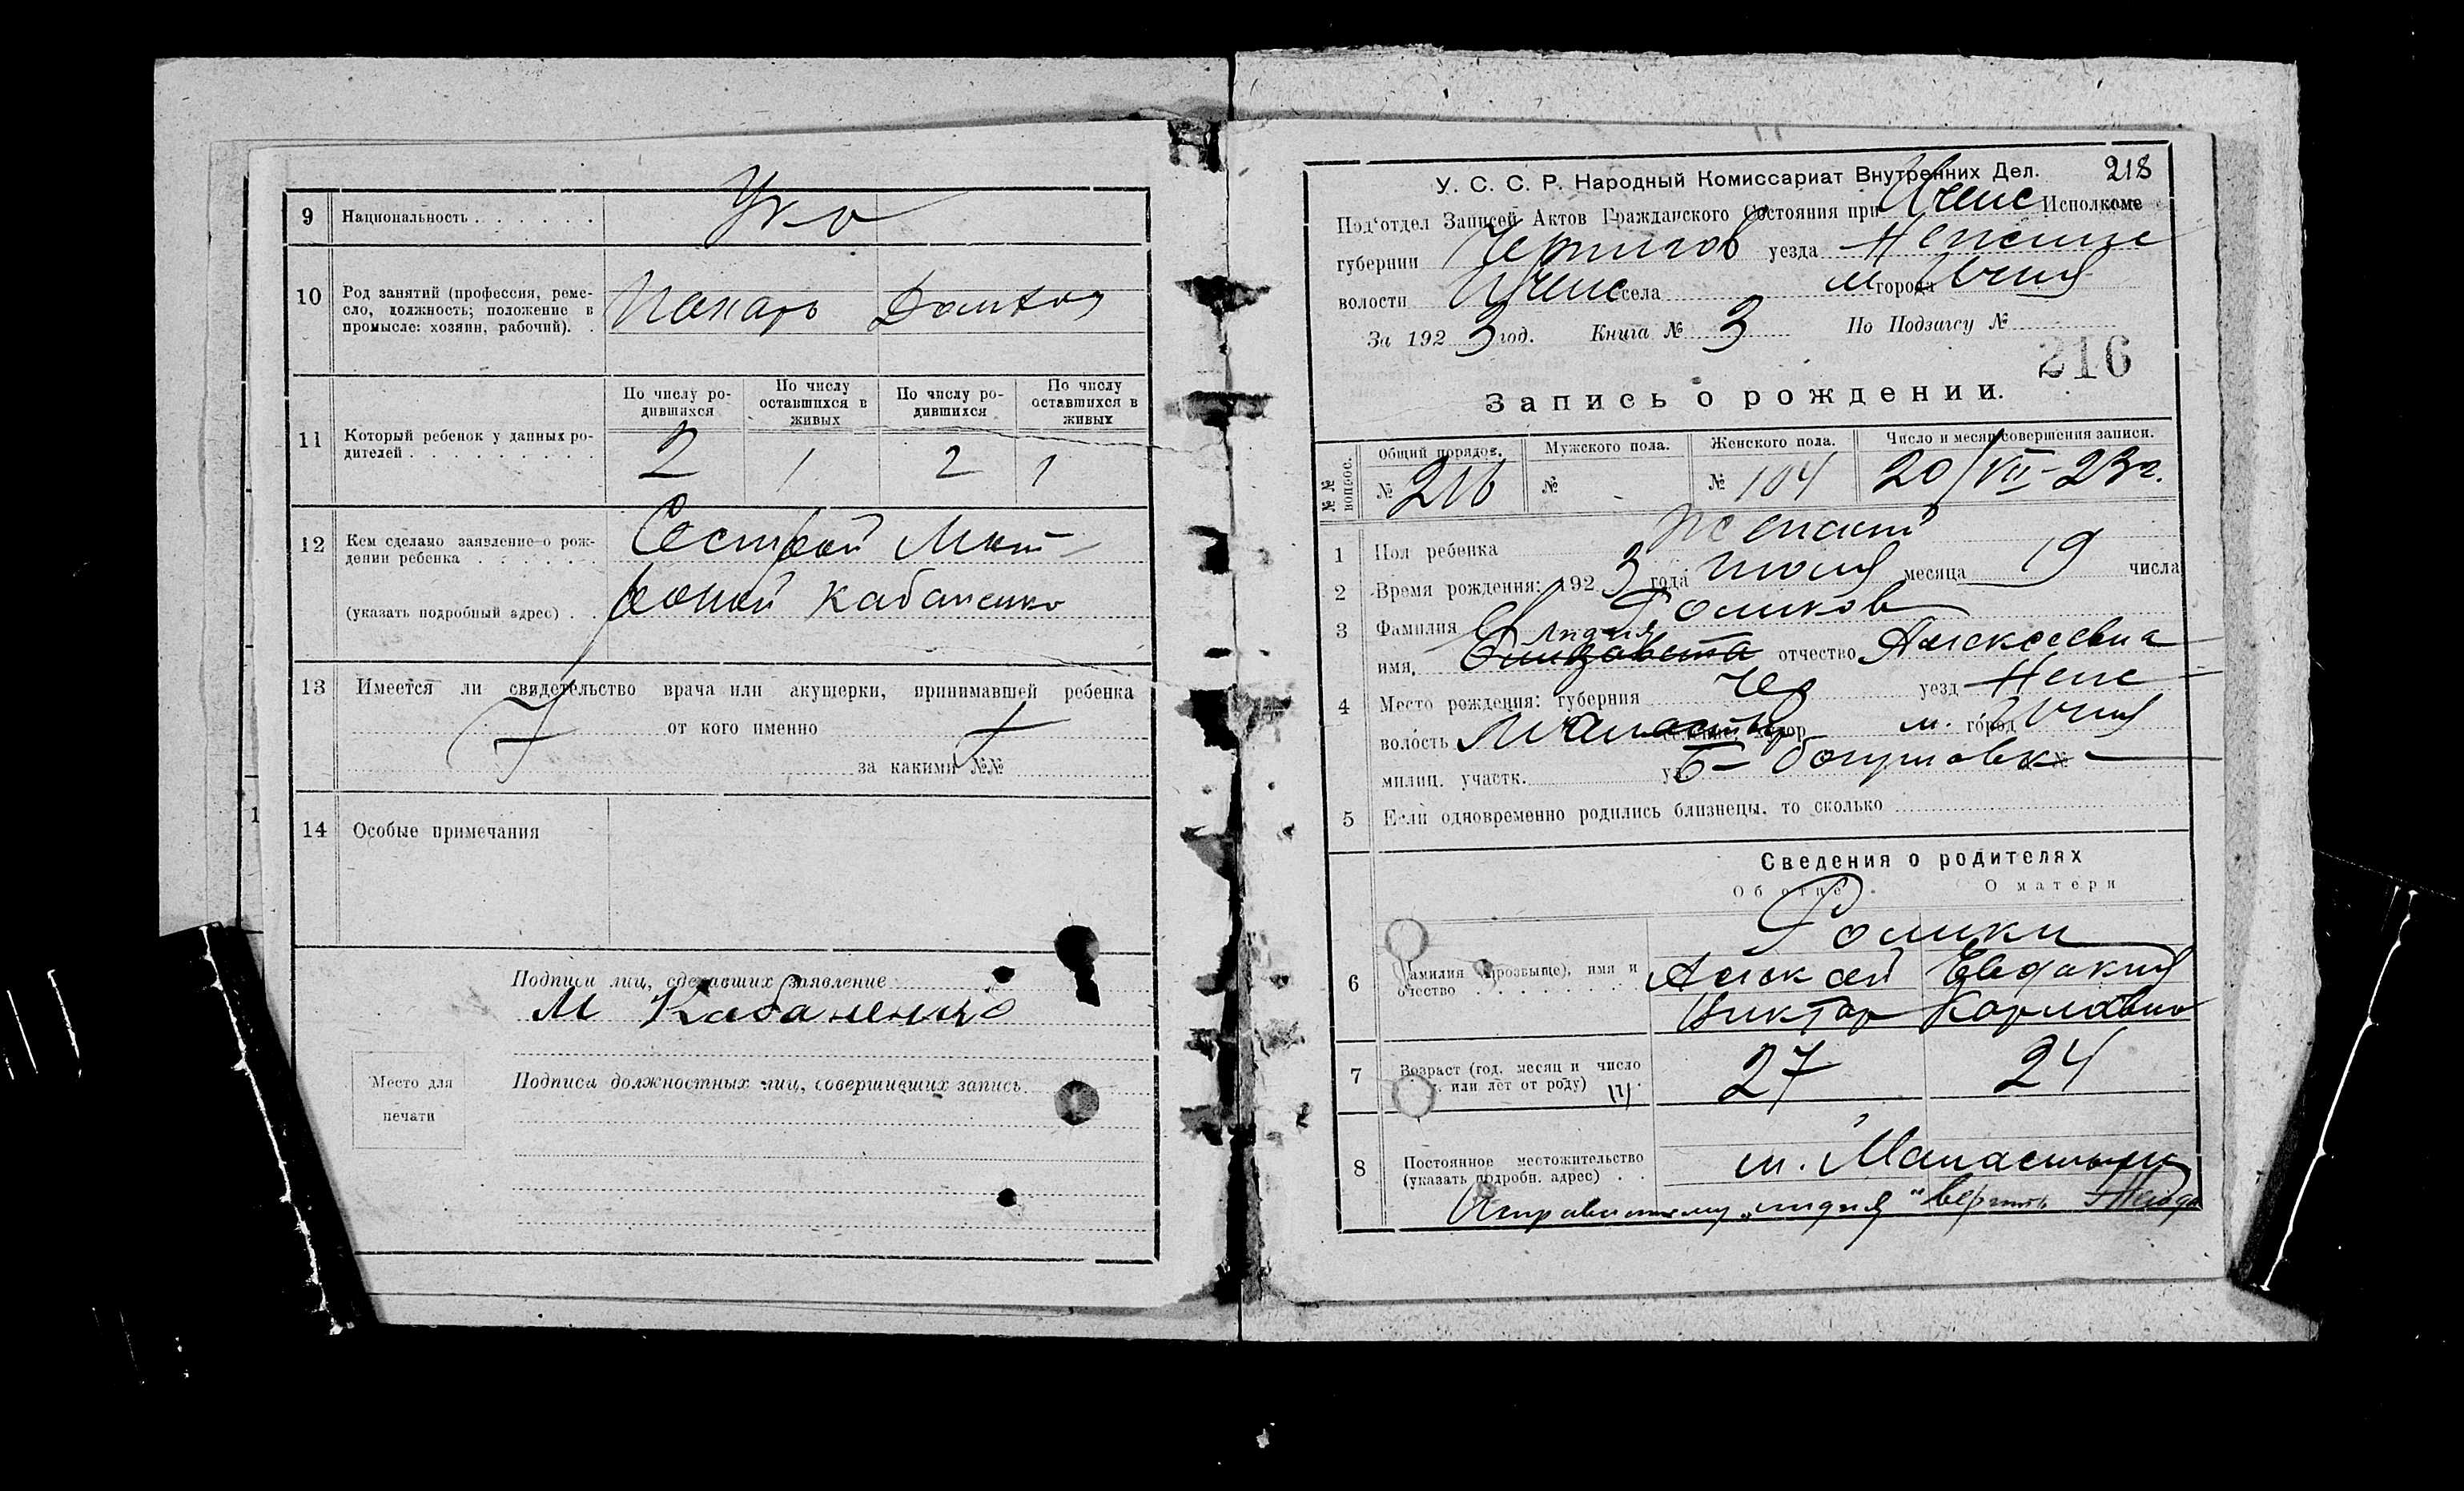 9 Национальность . . . . . . Укр
10 Род занятий (профессия, реме-
сло, должность; положение в
промысле: хозяин, рабочий). .
Пекарь Домхоз
11 Который ребенок у данных ро-
дителей . . . . . . . . . .
По числу ро-
дившихся
По числу
оставшихся в
живых
По числу ро-
дившихся
По числу
оставшихся в
живых
2 1 2 1
12 Кем сделано заявление о рож-
дении ребенка . . . . . .
(указать подробный адрес) . .
Сестрой Мот-
роной Кабаненко
13 Имеется ли свидетельство врача или акушерки, принимавшей ребенка
от кого именно
за какими №№
14 Особые примечания
Подписи лиц, сделавших заявление
М Кабаненко
Место для
печати
Подписи должностных лиц, совершивших запись
У. С. С. Р. Народный Комиссариат Внутренних Дел. 218
Под'отдел Записей Актов Гражданского Состояния при Ичнс Исполкоме
губернии Чернигов уезда Нежинс
волости Ичнс села м города Ичня
За 1923 год. Книга № 3 По Подзагсу №
216
Запись о рождении.
№ № вопрос.
Общий порядок. Мужского пола. Женского пола. Число и месяц совершения записи.
№ 216 № - № 104 20/VII-23г.
1 Пол ребенка женский
2 Время рождения: 1923 года Июля месяца 19 числа
3 Фамилия Ромиков
Лидия
имя, Елизавета отчество Алексеевна
4 Место рождения: губерния Чер уезд Неж
волость Ичнс селение, хутор м. город Ичня
милиц. участк. ул
5 Если одновременно родились близнецы, то сколько
Сведения о родителях
Об отце. О матери
6 Фамилия (прозвище), имя и
отчество . . . . . . . .
Ромики
Алексей Евдокия
Виктор Карповна
7 Возраст (год, месяц и число
или лет от роду)
27 24
8 Постоянное местожительство
(указать подробн. адрес) . .
Исправленному „Лидия" верить